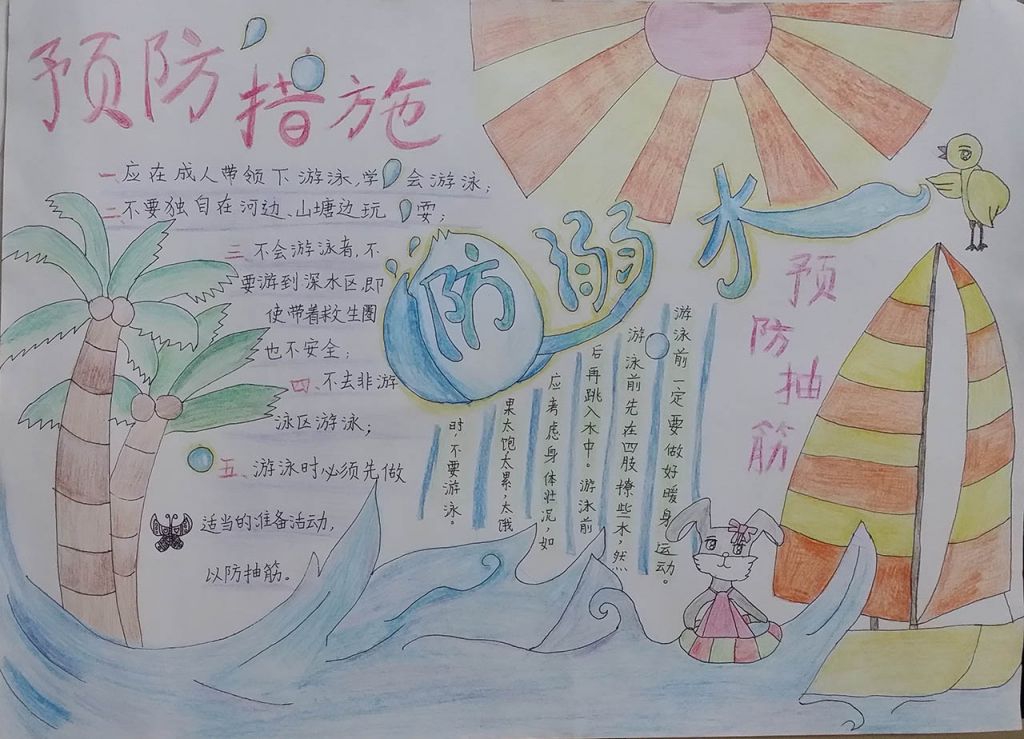 预防措施
一应在成人带领下游泳,学会游泳;
二不要独自在河边、山塘边玩耍;
三不会游泳者,不
要游到深水区即
使带着救生圈
也不安全;
四、不去非游
泳区游泳;
五、游泳时必须先做
适当的准备活动,
以防抽筋。
防溺水
预防抽筋
游泳前一定要做好暖身运动。
游泳前先在四肢撩些水,然
后再跳入水中。游泳前
应考虑身体壮况,如
果太饱太累,太饿
时,不要游泳。